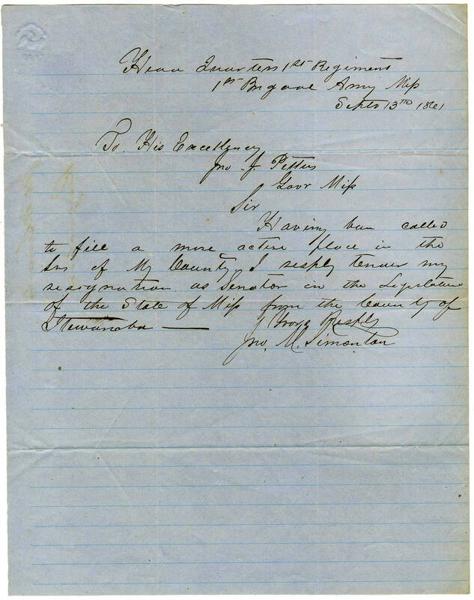 Head Quarters 1st Regiment
1st Brigade Army Miss
Sept 13th 1861
To His Excellency
Jno. J. Pettus
Govr Miss
Sir
Having been called
to fill a more active place in the
of My County, I resply tender my
resignation as Senator in the Legislature
of the State of Miss from the County of
Itawamba —
Yours Resply
Jno. M. Simonton